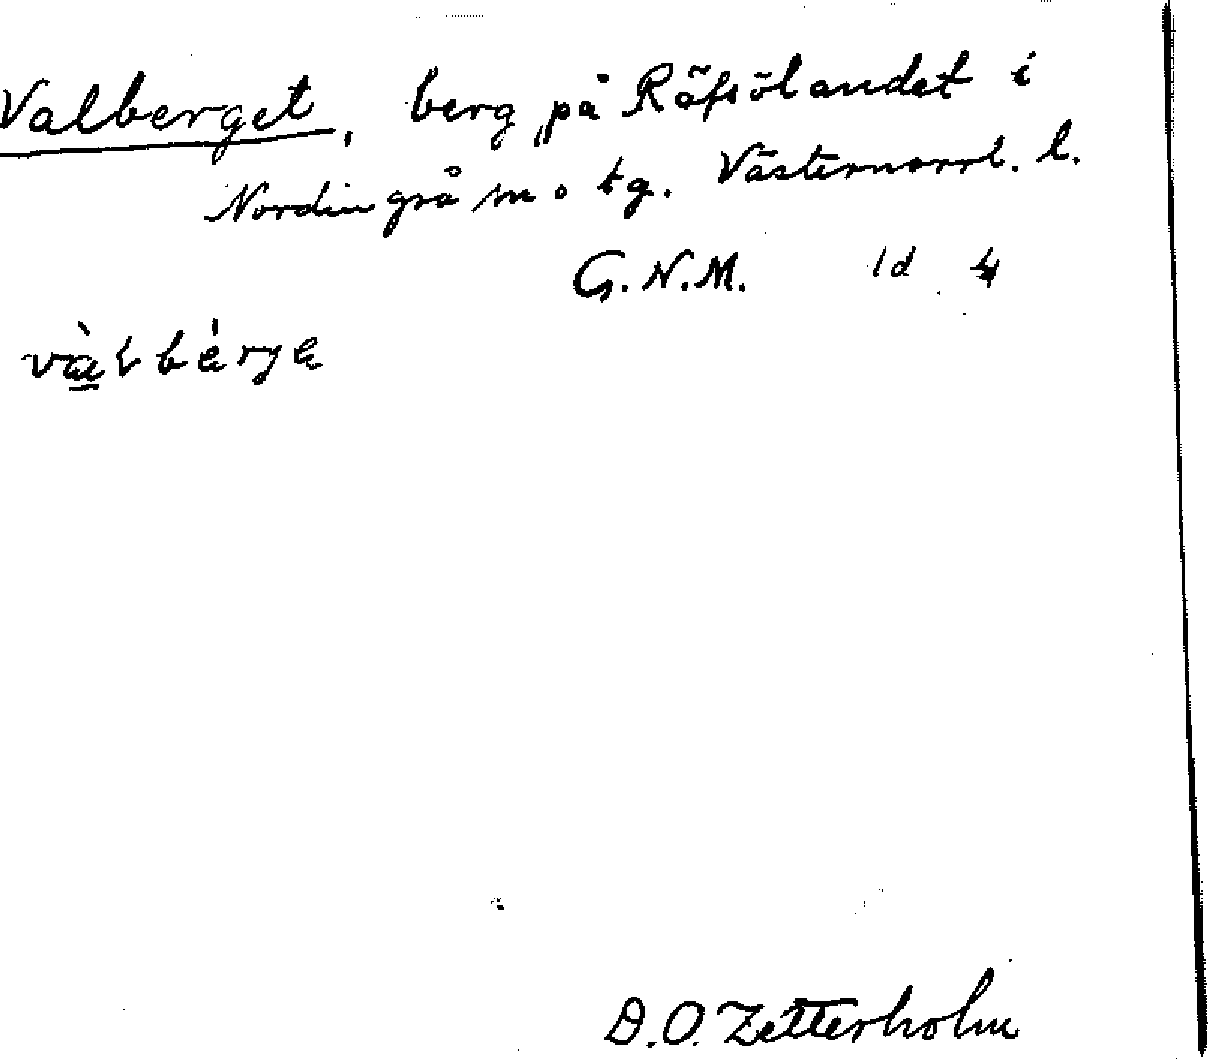 Valberget, berg på Räfsölandet i
Nordingrå sn o tg. Västernorrl. l.
G.N.M. 1d 4
D.O. Zetterholm